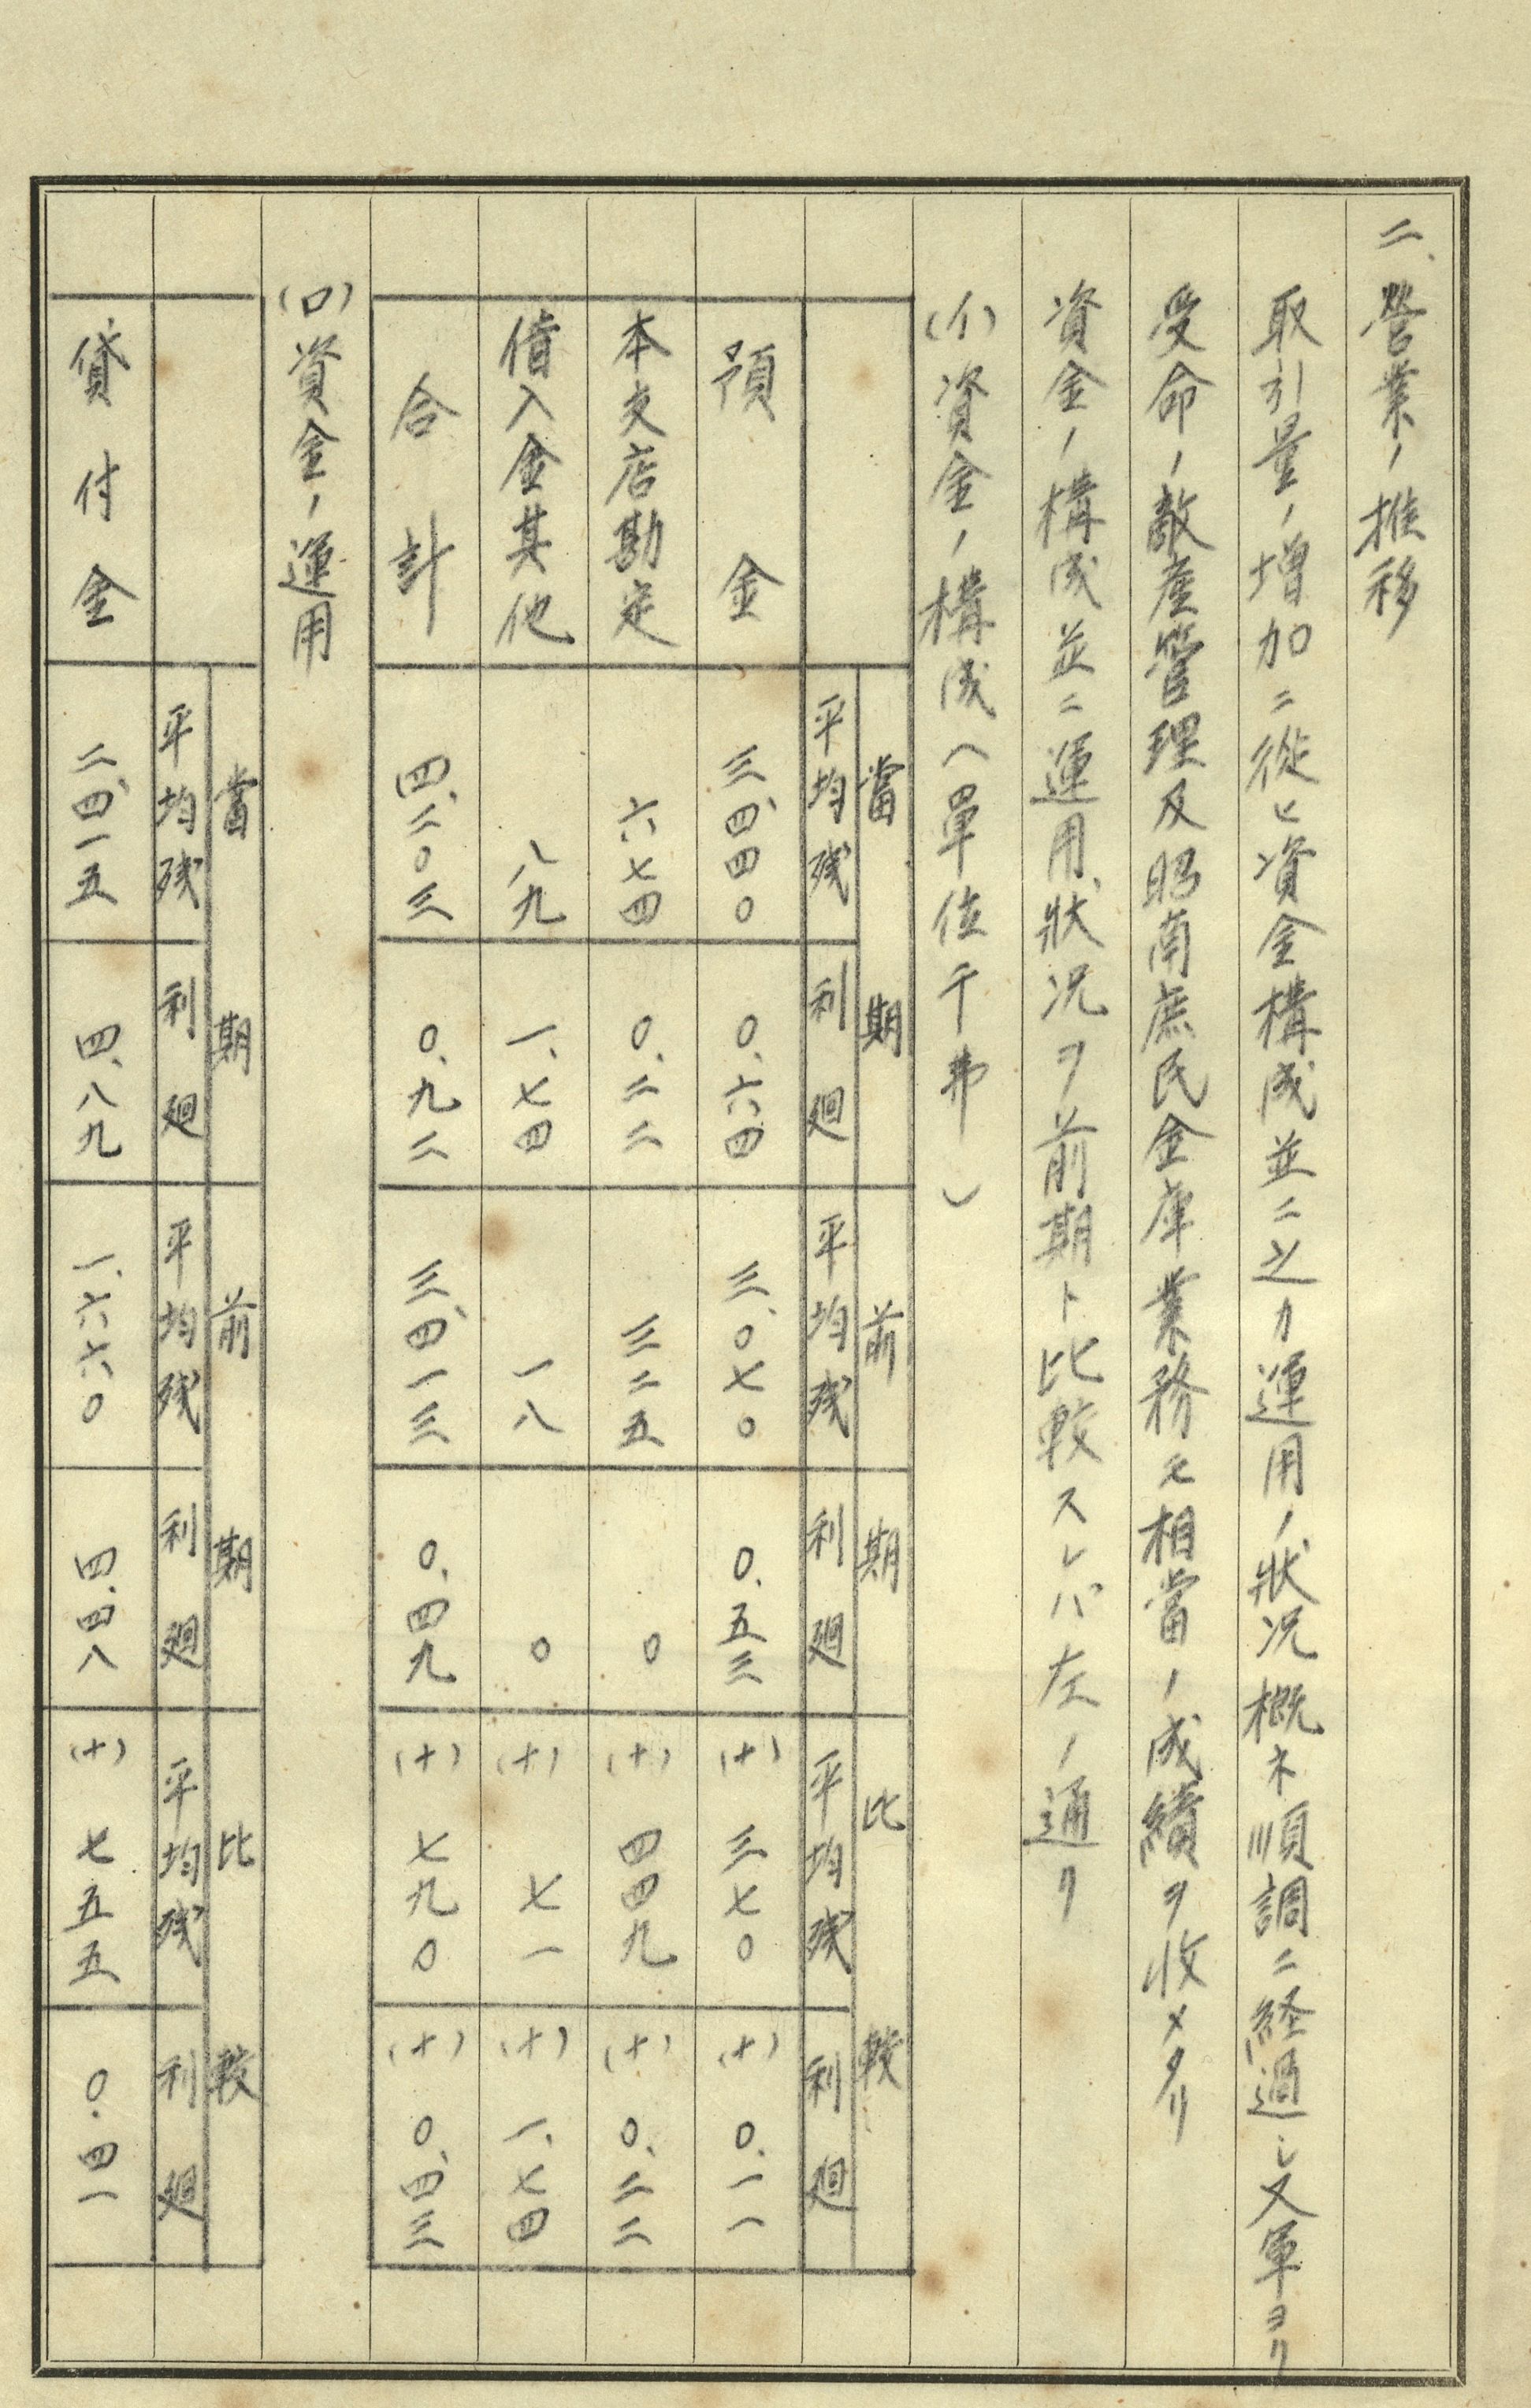 二、営業ノ推移
取引量ノ増加ニ從ヒ資金構成並ニ之カ運用ノ狀況概ネ順調ニ経過シ又軍ヨリ
受命ノ敵産管理及昭南庶民金庫業務モ相當ノ成績ヲ收メタリ
資金ノ構成並ニ運用狀況ヲ前期ト比較スレバ左ノ通リ
(イ)資金ノ構成(單位千弗)
當期 前期 比較
平均残 利廻 平均残 利廻 平均残 利廻
預金 三、四四〇 〇.六四 三、〇七〇 〇.五三 (+)三七〇 (+)〇.一一
本支店勘定 六七四 〇.二二 三二五 〇 (+)四四九 (+)〇.二二
借入金其他 八九 一.七四 一八 〇 (+)七一 (+)一.七四
合計 四、二〇三 〇.九二 三、四一三 〇.四九 (+)七九〇 (+)〇.四三
(ロ)資金ノ運用
當期 前期 比較
平均残 利廻 平均残 利廻 平均残 利廻
貸付金 二、四一五 四.八九 一、六六〇 四.四八 (+)七五五 〇.四一